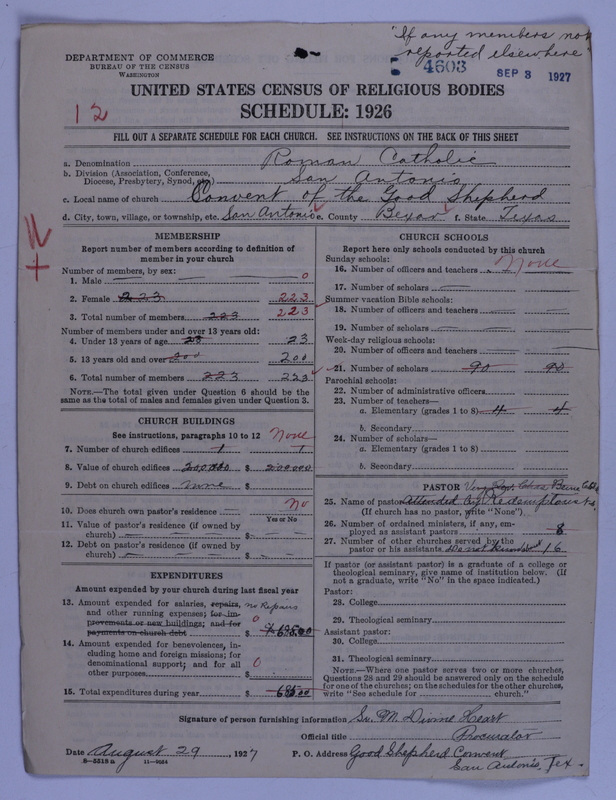 "If any members not
reported elsewhere
DEPARTMENT OF COMMERCE
BUREAU OF THE CENSUS
WASHINGTON
4603
SEP 3 1927
UNITED STATES CENSUS OF RELIGIOUS BODIES
SCHEDULE: 1926
12
FILL OUT A SEPARATE SCHEDULE FOR EACH CHURCH. SEE INSTRUCTIONS ON THE BACK OF THIS SHEET
a. Denomination Roman Catholic
b. Division (Association, Conference, Diocese, Presbytery, Synod, etc.) San Antonio
c. Local name of church Convent of the Good Shepherd
d. City, town, village, or township, etc. San Antonio e. County Bexar f. State Texas
MEMBERSHIP
Report number of members according to definition of
member in your church
Number of members, by sex:
1. Male 0
2. Female 223 223
3. Total number of members 223 223
Number of members under and over 13 years old:
4. Under 13 years of age 23 23
5. 13 years old and over 200 200
6. Total number of members 223 223
NOTE.—The total given under Question 6 should be the
same as the total of males and females given under Question 3.
CHURCH BUILDINGS
See instructions, paragraphs 10 to 12 None
7. Number of church edifices 1 1
8. Value of church edifices 200,000 $ 200,000
9. Debt on church edifices none $
10. Does church own pastor's residence No
Yes or No
11. Value of pastor's residence (if owned by
church) $
12. Debt on pastor's residence (if owned by
church) $
EXPENDITURES
Amount expended by your church during last fiscal year
13. Amount expended for salaries, repairs, no Repairs
and other running expenses; for im-
provements or new buildings; and for 0
payments on church debt $
14. Amount expended for benevolences, in-
cluding home and foreign missions; for
denominational support; and for all 0
other purposes $
15. Total expenditures during year $
CHURCH SCHOOLS
Report here only schools conducted by this church
Sunday schools:
16. Number of officers and teachers None
17. Number of scholars
Summer vacation Bible schools:
18. Number of officers and teachers
19. Number of scholars
Week-day religious schools:
20. Number of officers and teachers
21. Number of scholars 90 90
Parochial schools:
22. Number of administrative officers
23. Number of teachers—
a. Elementary (grades 1 to 8) 4 4
b. Secondary
24. Number of scholars—
a. Elementary (grades 1 to 8)
b. Secondary
PASTOR Very Rev. Chas
25. Name of pastor Attended by Redemptorists
(If church has no pastor, write "None")
26. Number of ordained ministers, if any, em-
ployed as assistant pastors 8
27. Number of other churches served by the
pastor or his assistants Do not know 16
If pastor (or assistant pastor) is a graduate of a college or
theological seminary, give name of institution below. (If
not a graduate, write "No" in the space indicated.)
Pastor:
28. College
29. Theological seminary
Assistant pastor:
30. College
31. Theological seminary
NOTE.—Where one pastor serves two or more churches,
Questions 28 and 29 should be answered only on the schedule
for one of the churches; on the schedules for the other churches,
write "See schedule for church."
Signature of person furnishing information Sr. M. Divine Heart
Official title Procurator
Date August 29, 1927 P. O. Address Good Shepherd Convent
San Antonio, Tex.
8—5518 a 11—9564